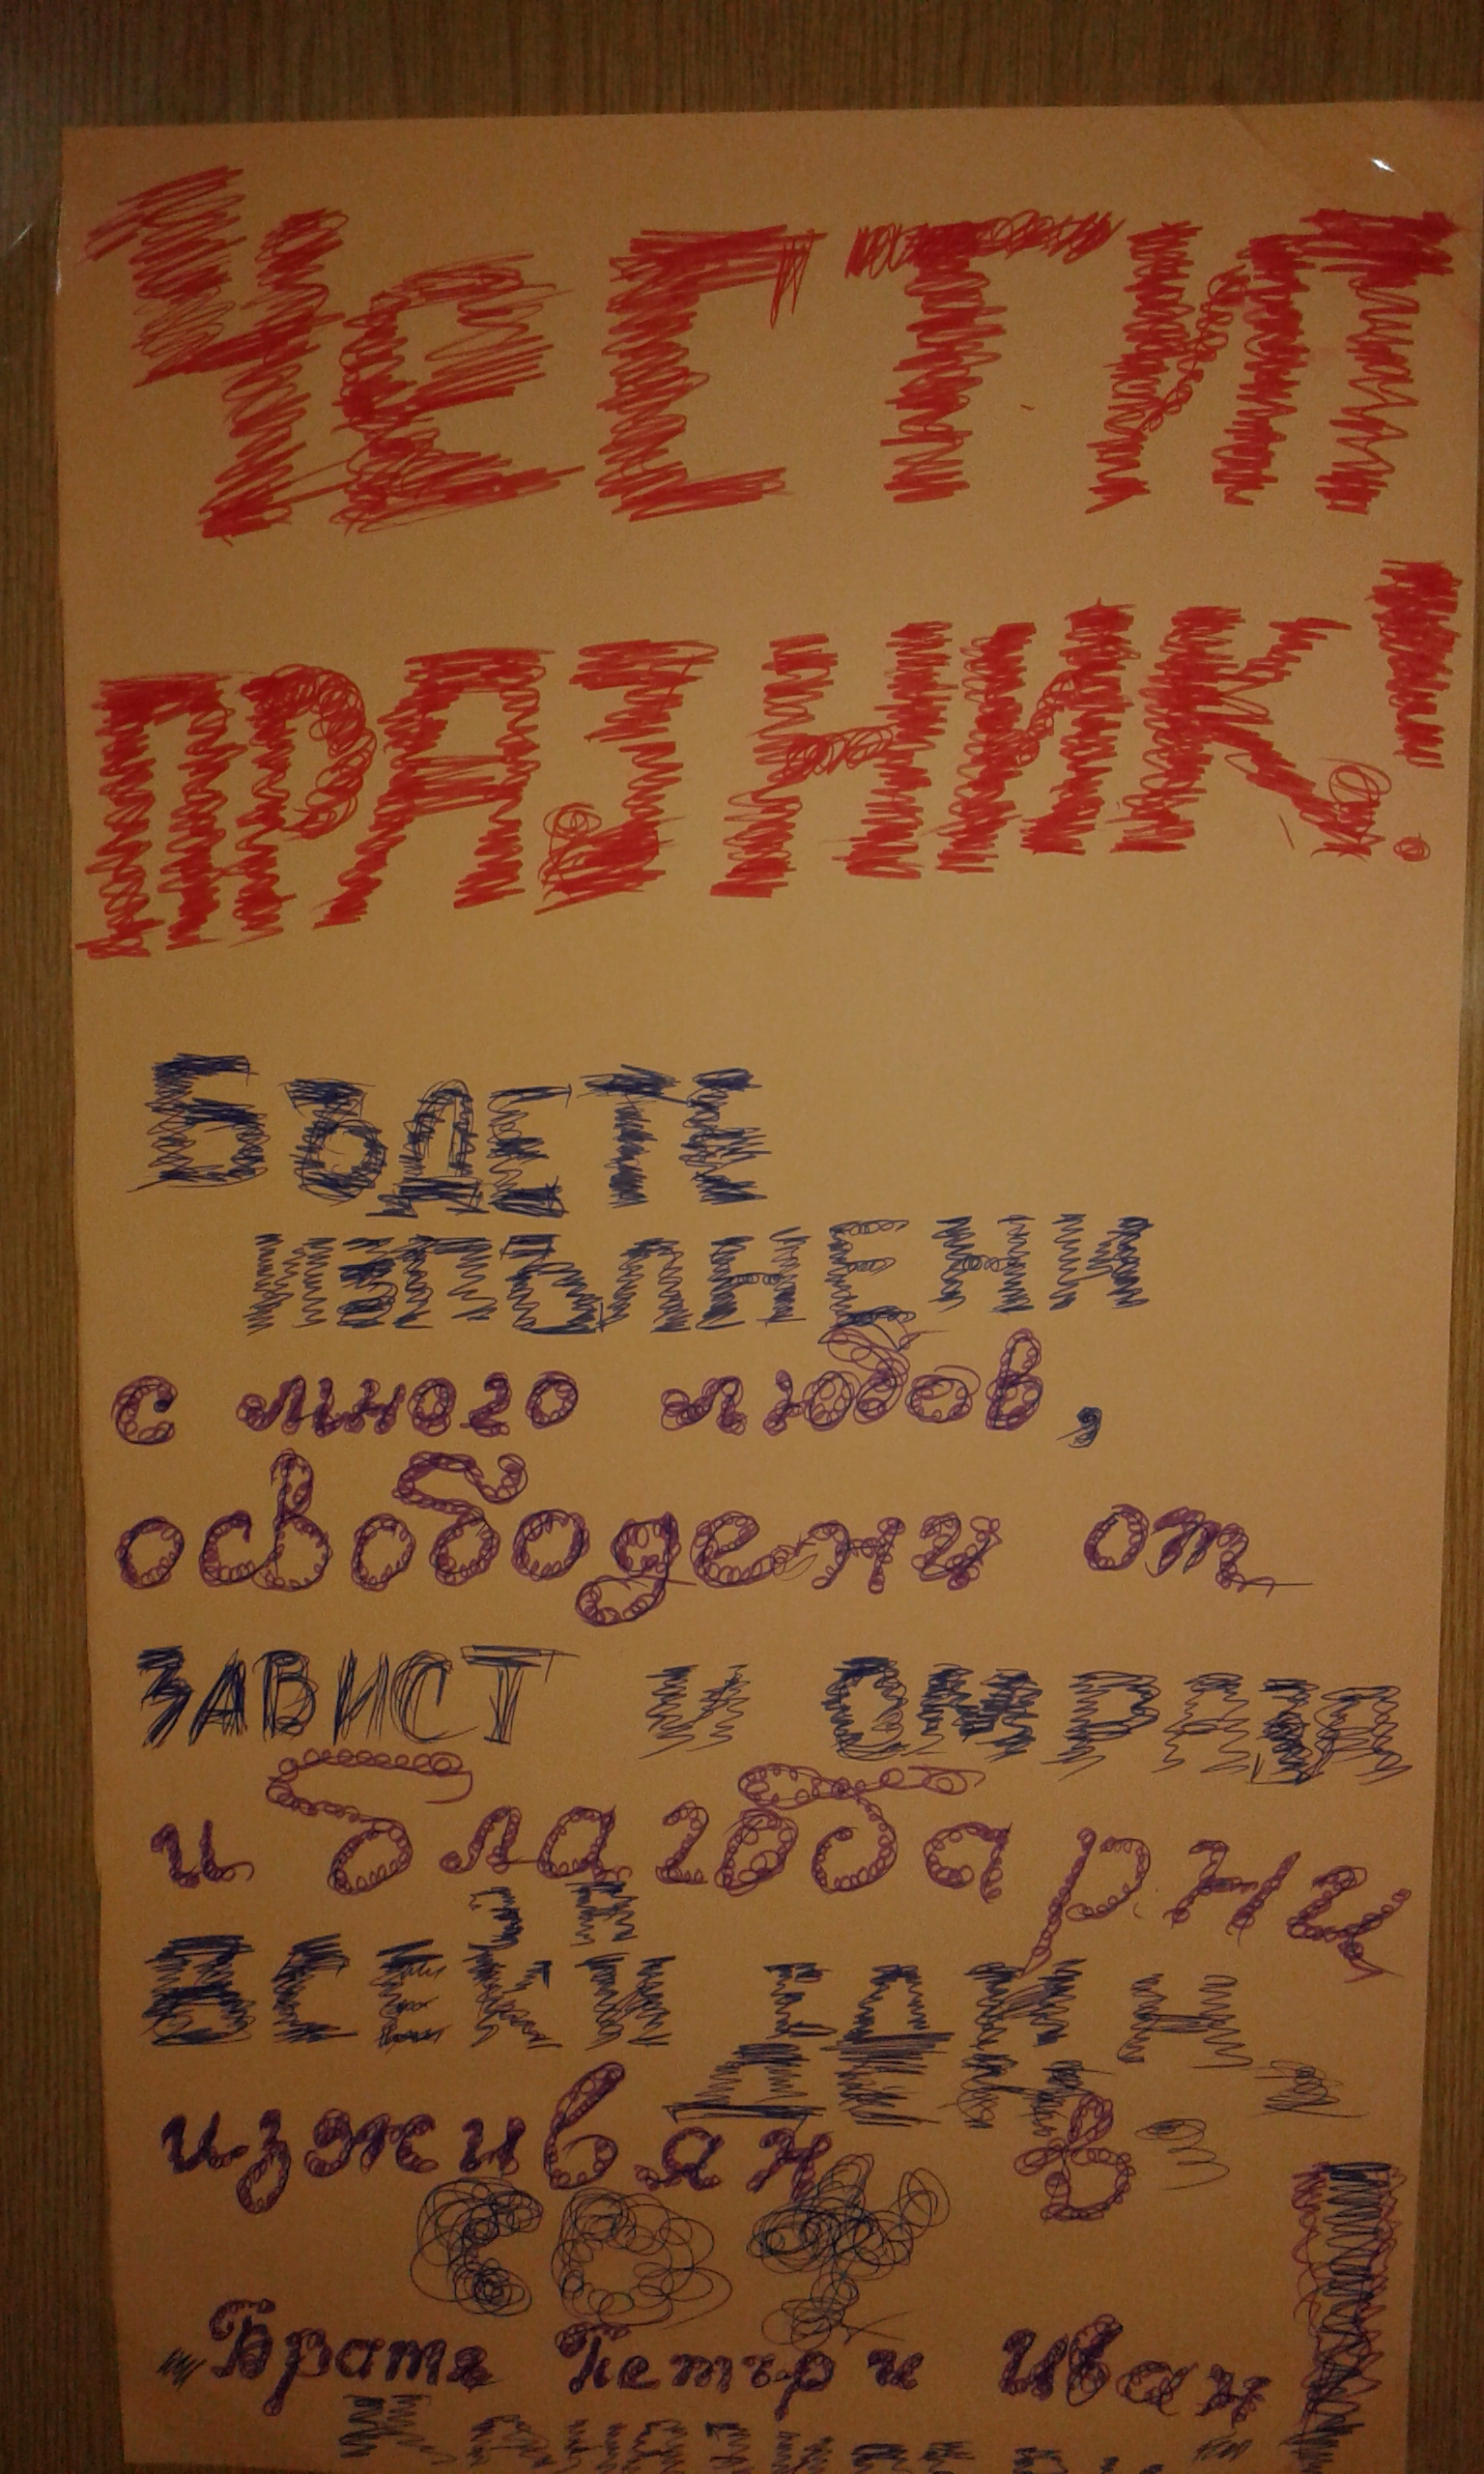 ЧеСТИТ
ПРАЗНИК!
БЪДЕТЕ
ИЗПЪЛНЕНИ
с много любов,
освободени от
ЗАВИСТ И ОМРАЗА
и благодарни
ЗА
ВСЕКИ ЕДИН
ДЕН,
изживян в
СОУ
„Братя Петър и Иван
Каназиреви“!